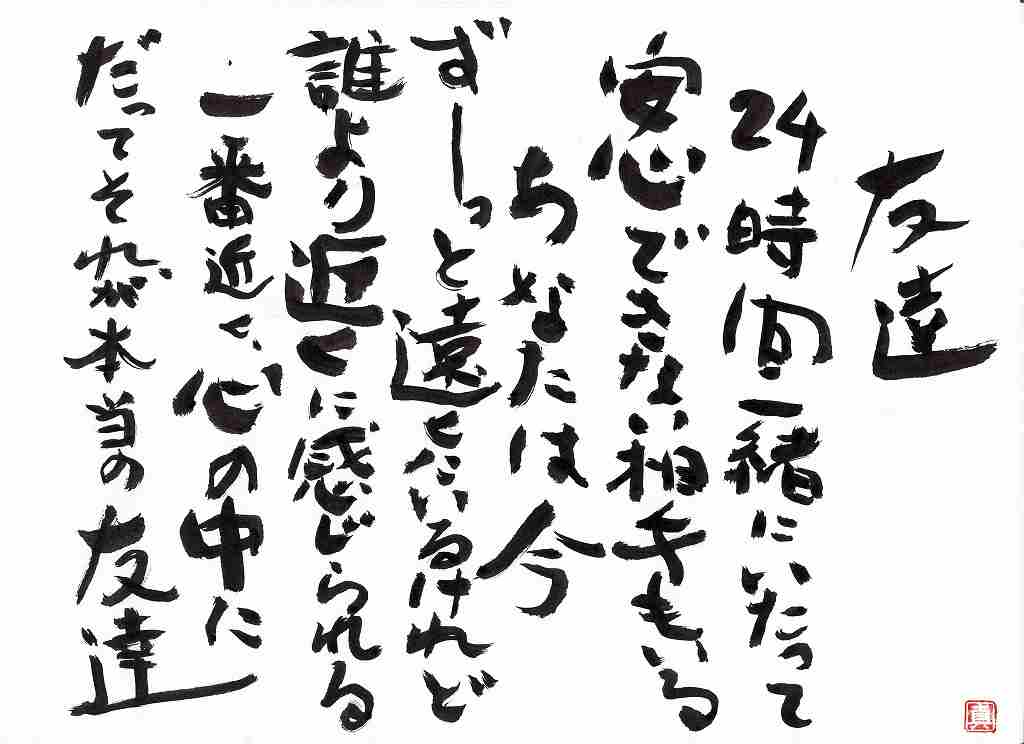 友達
24時間一緒にいたって
安心できない相手もいる
あなたは今
ずーっと遠くにいるけれど
誰より近くに感じられる
一番近く、心の中に
だってそれが本当の友達
真